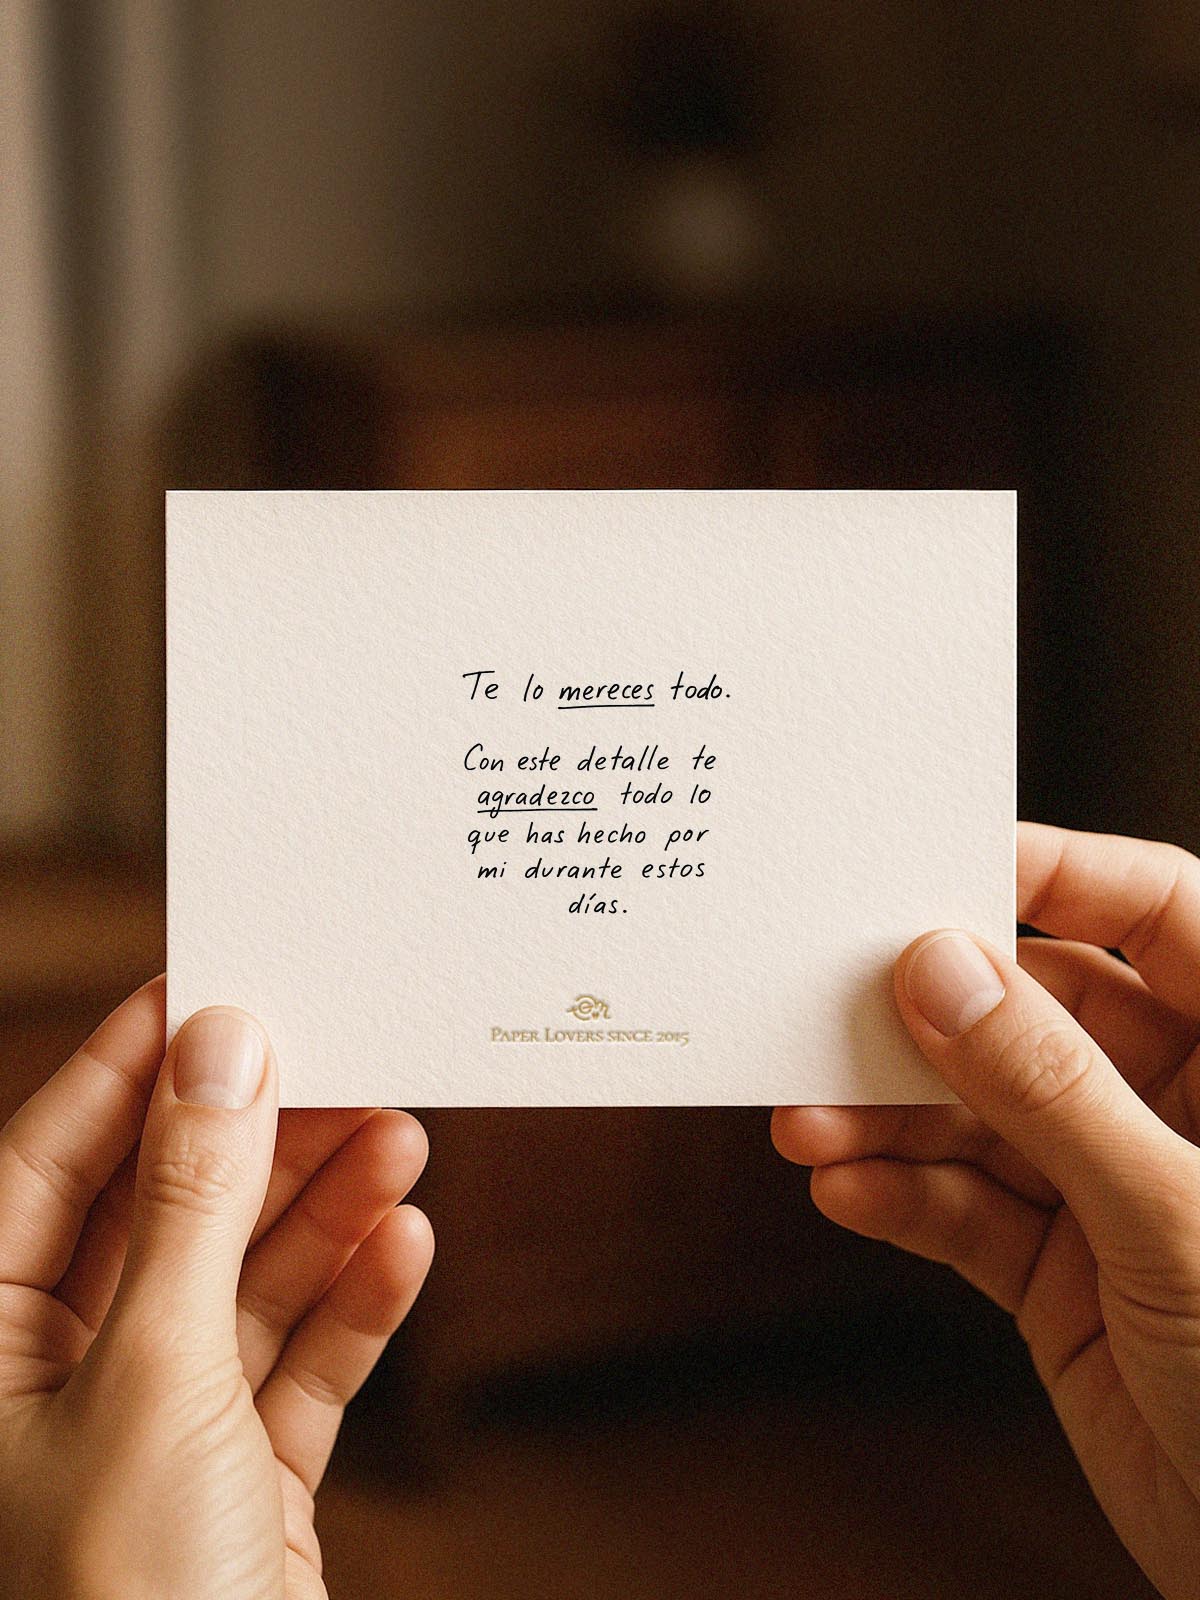 Te lo mereces todo.
Con este detalle te
agradezco todo lo
que has hecho por
mi durante estos
días.
PAPER LOVERS SINCE 2015